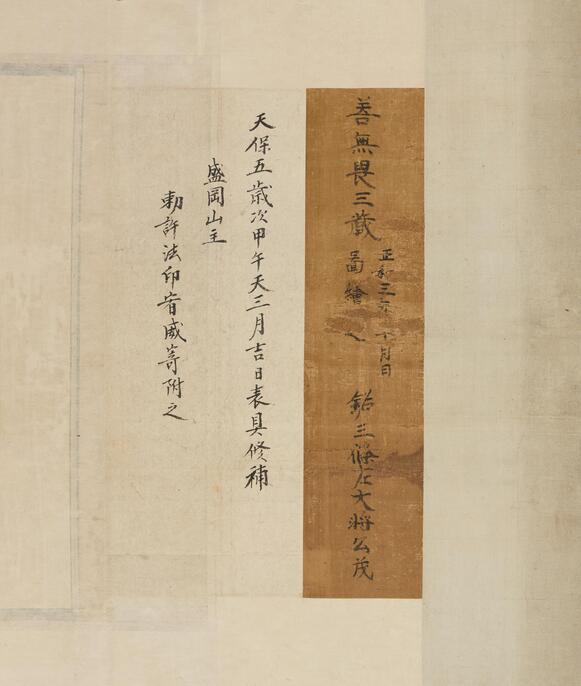 善無畏三蔵
正和三年 十月日
圖繪之
銘三條左大将公茂
天保五歳次甲午天三月吉日表具修補
盛岡山主
勅許法印宥威寄附之